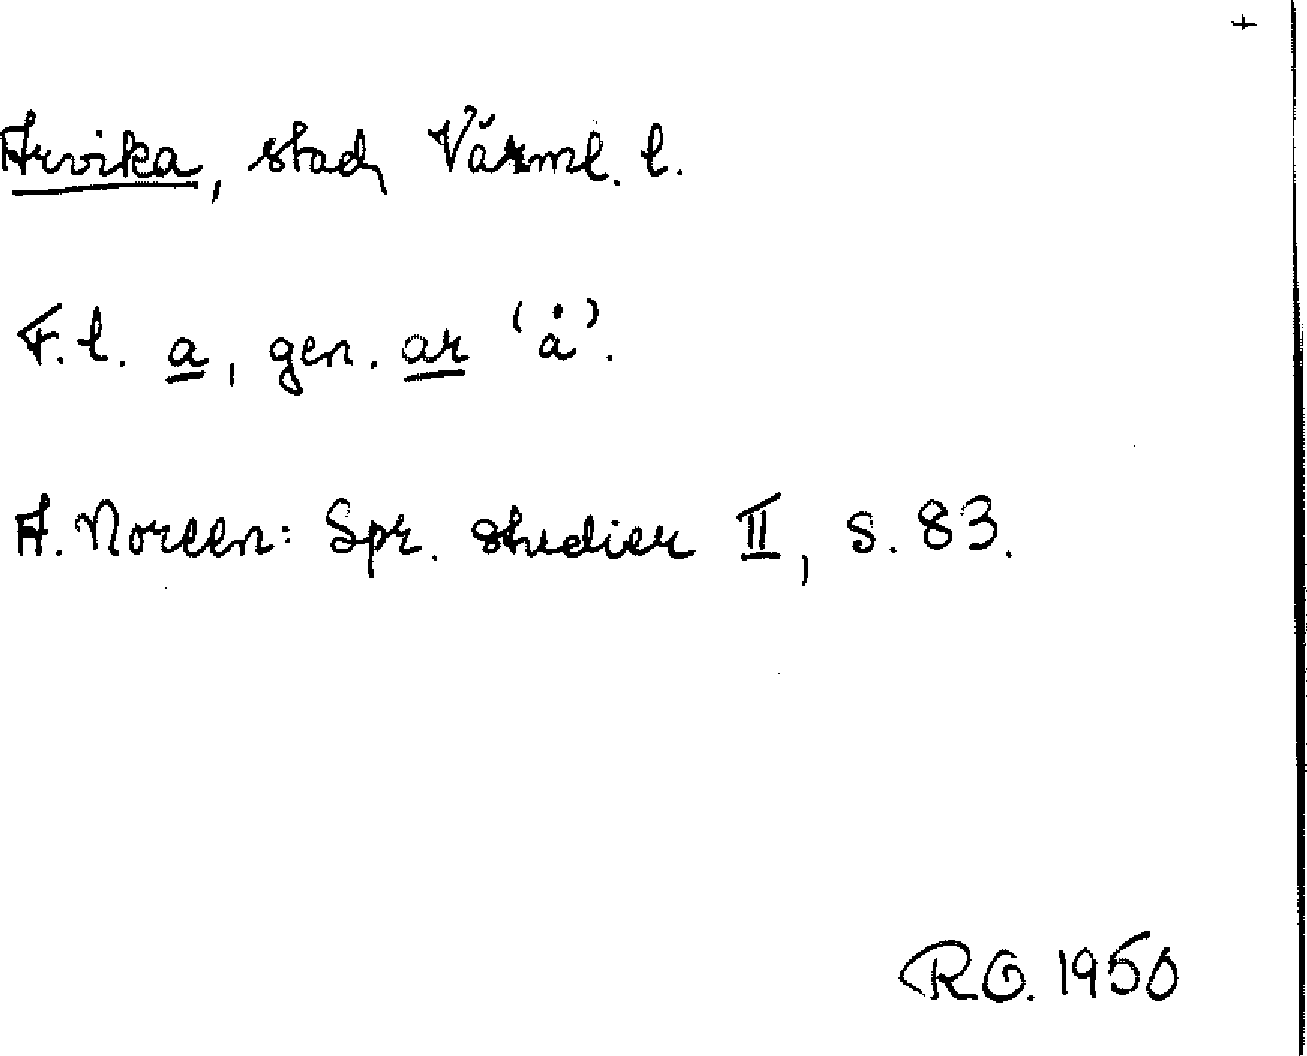 +
Arvika, stad, Värml. l.
F.l. a, gen. ar 'å'.
A. Noreen: Spr. studier II, s. 83.
R.O. 1950